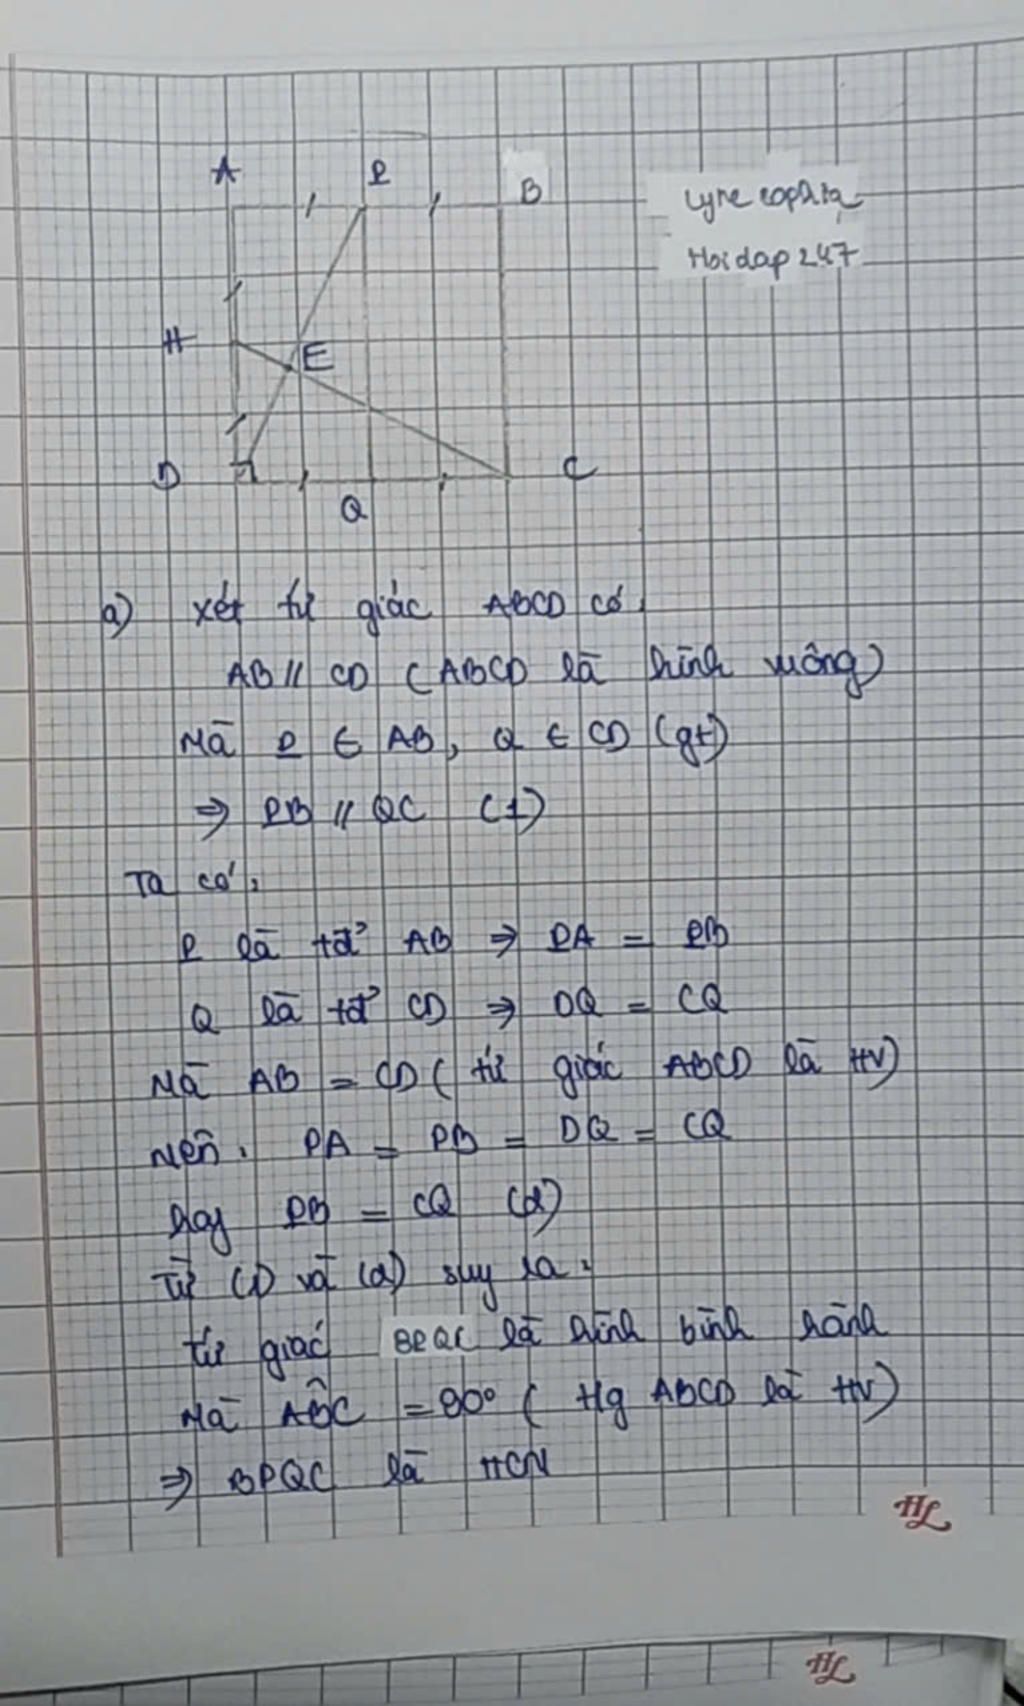 A P B
Lyne sophia
Hoidap 247
H E
D Q C
a) xét tứ giác ABCD có:
AB // CD (ABCD là hình vuông)
Mà P ∈ AB, Q ∈ CD (gt)
⇒ PB // QC (1)
Ta có:
P là tđ' AB ⇒ PA = PB
Q là tđ' CD ⇒ DQ = CQ
Mà AB = CD ( tứ giác ABCD là HV)
Nên: PA = PB = DQ = CQ
hay PB = CQ (2)
Từ (1) và (2) suy ra:
tứ giác BPQC là hình bình hành
Mà ABC = 90° ( Hg ABCD là HV)
⇒ BPQC là HCN
HL
HL